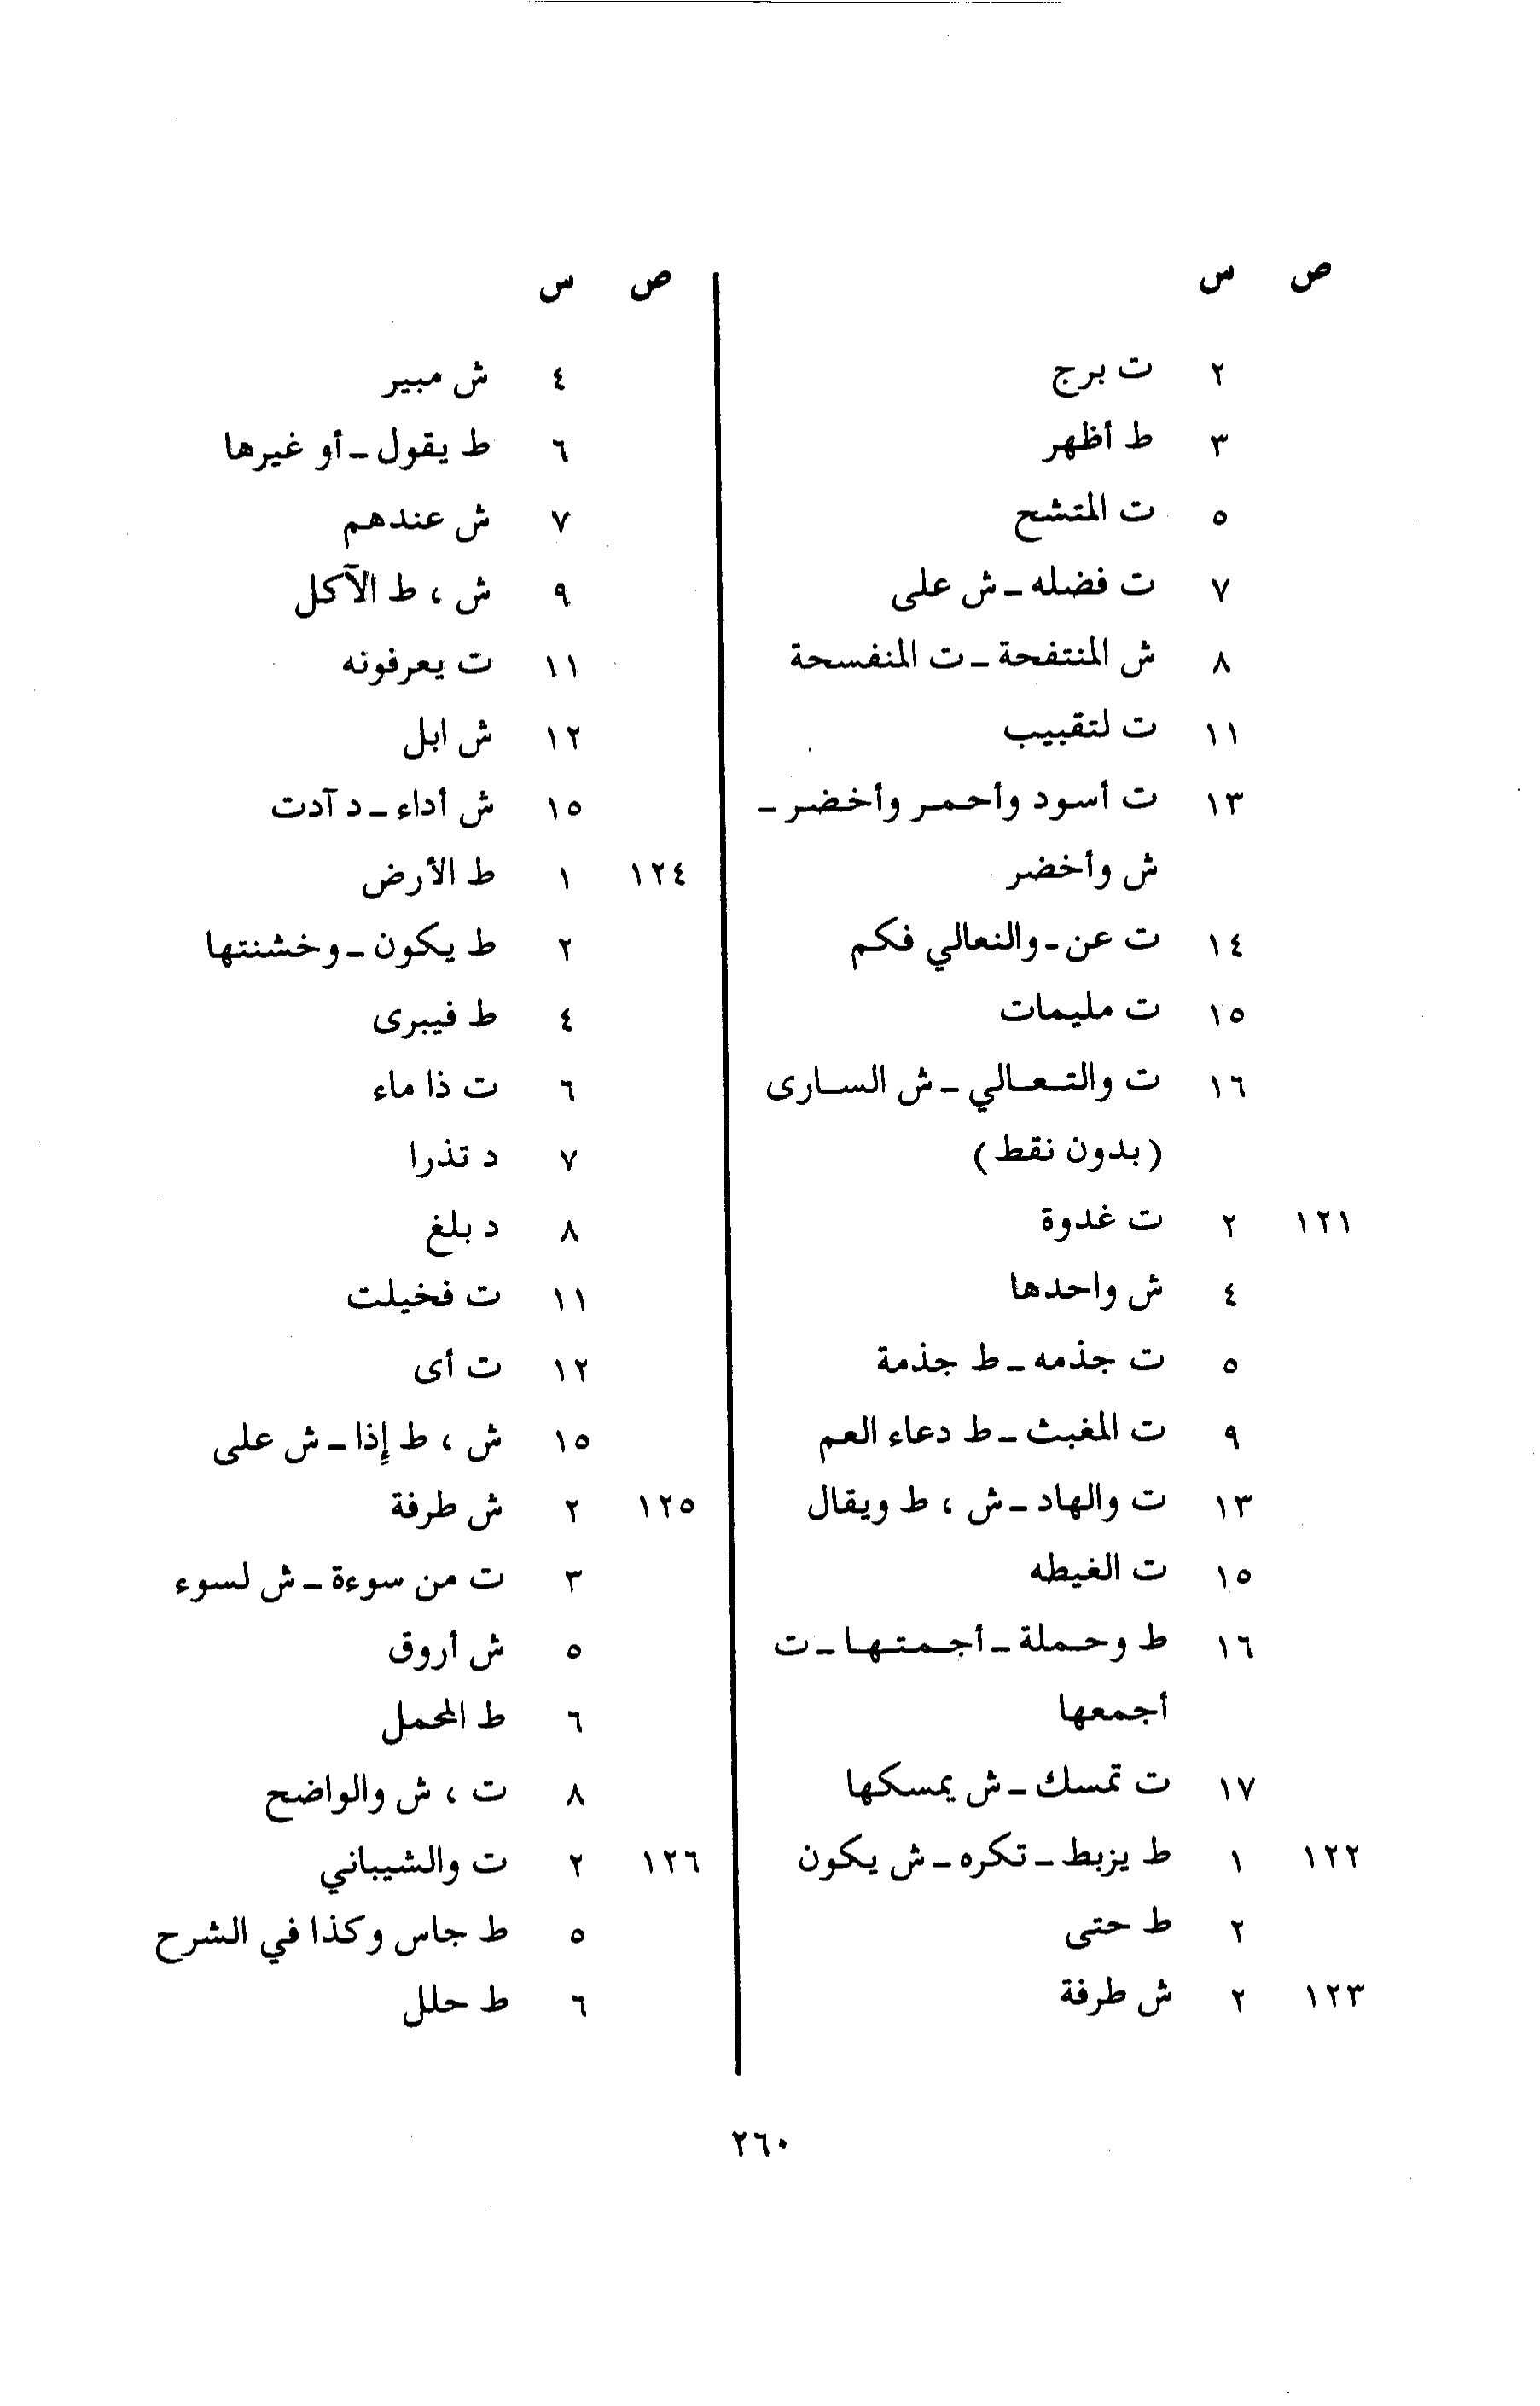 ص س
٢ ت برج
٣ ط أظهر
٥ ت المتشح
٧ ت فضله ـ ش على
٨ ش المنتفحة ـ ت المنفسحة
١١ ت لتقبيب
١٣ ت أسود وأحمر وأخضر ـ
ش وأخضر
١٤ ت عن ـ والنعالي فكم
١٥ ت مليمات
١٦ ت والتعالي ـ ش السارى
(بدون نقط)
١٢١ ٢ ت غدوة
٤ ش واحدها
٥ ت جذمه ـ ط جذمة
٩ ت المغبث ـ ط دعاء العم
١٣ ت والهاد ـ ش ، ط ويقال
١٥ ت الغيطه
١٦ ط وحملة ـ أجمتها ـ ت
أجمعها
١٧ ت تمسك ـ ش يمسكها
١٢٢ ١ ط يزبط ـ تكره ـ ش يكون
٢ ط حتى
١٢٣ ٢ ش طرفة
ص س
٤ ش مبير
٦ ط يقول ـ أو غيرها
٧ ش عندهم
٩ ش ، ط الآكل
١١ ت يعرفونه
١٢ ش ابل
١٥ ش أداء ـ د آدت
١٢٤ ١ ط الأرض
٢ ط يكون ـ وخشنتها
٤ ط فيبرى
٦ ت ذا ماء
٧ د تذرا
٨ د بلغ
١١ ت فخيلت
١٢ ت أى
١٥ ش ، ط إذا ـ ش على
١٢٥ ٢ ش طرفة
٣ ت من سوءة ـ ش لسوء
٥ ش أروق
٦ ط المحمل
٨ ت ، ش والواضح
١٢٦ ٢ ت والشيباني
٥ ط جاس وكذا في الشرح
٦ ط حلل
٢٦٠